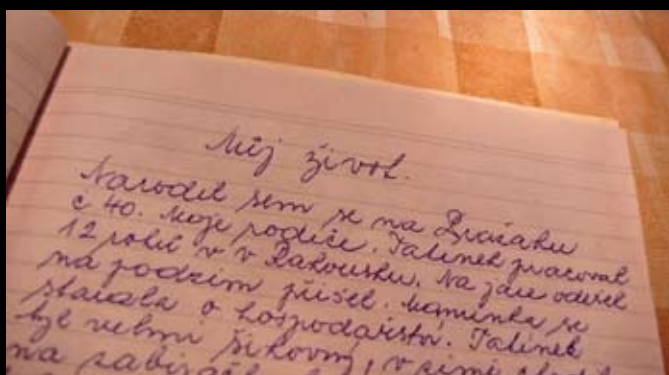 Můj život.
Narodil sem se na
č 40. Moje rodiče. Tatínek pracoval
12 roků v v Rakousku. Na jaře odešel
na podzim přišel. Maminka se
starala o hospodářství. Tatínek
byl velmi šikovný, v zimě
na